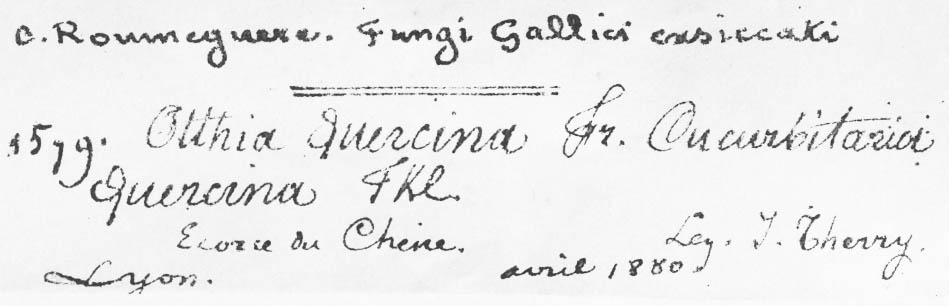 C. Roumeguere. Fungi Gallici exsiccati
1579. Otthia Quercina Fr. Cucurbitaria
Quercina Fkl.
Ecorce du Chêne. Leg. J. Therry.
Lyon. avril 1880